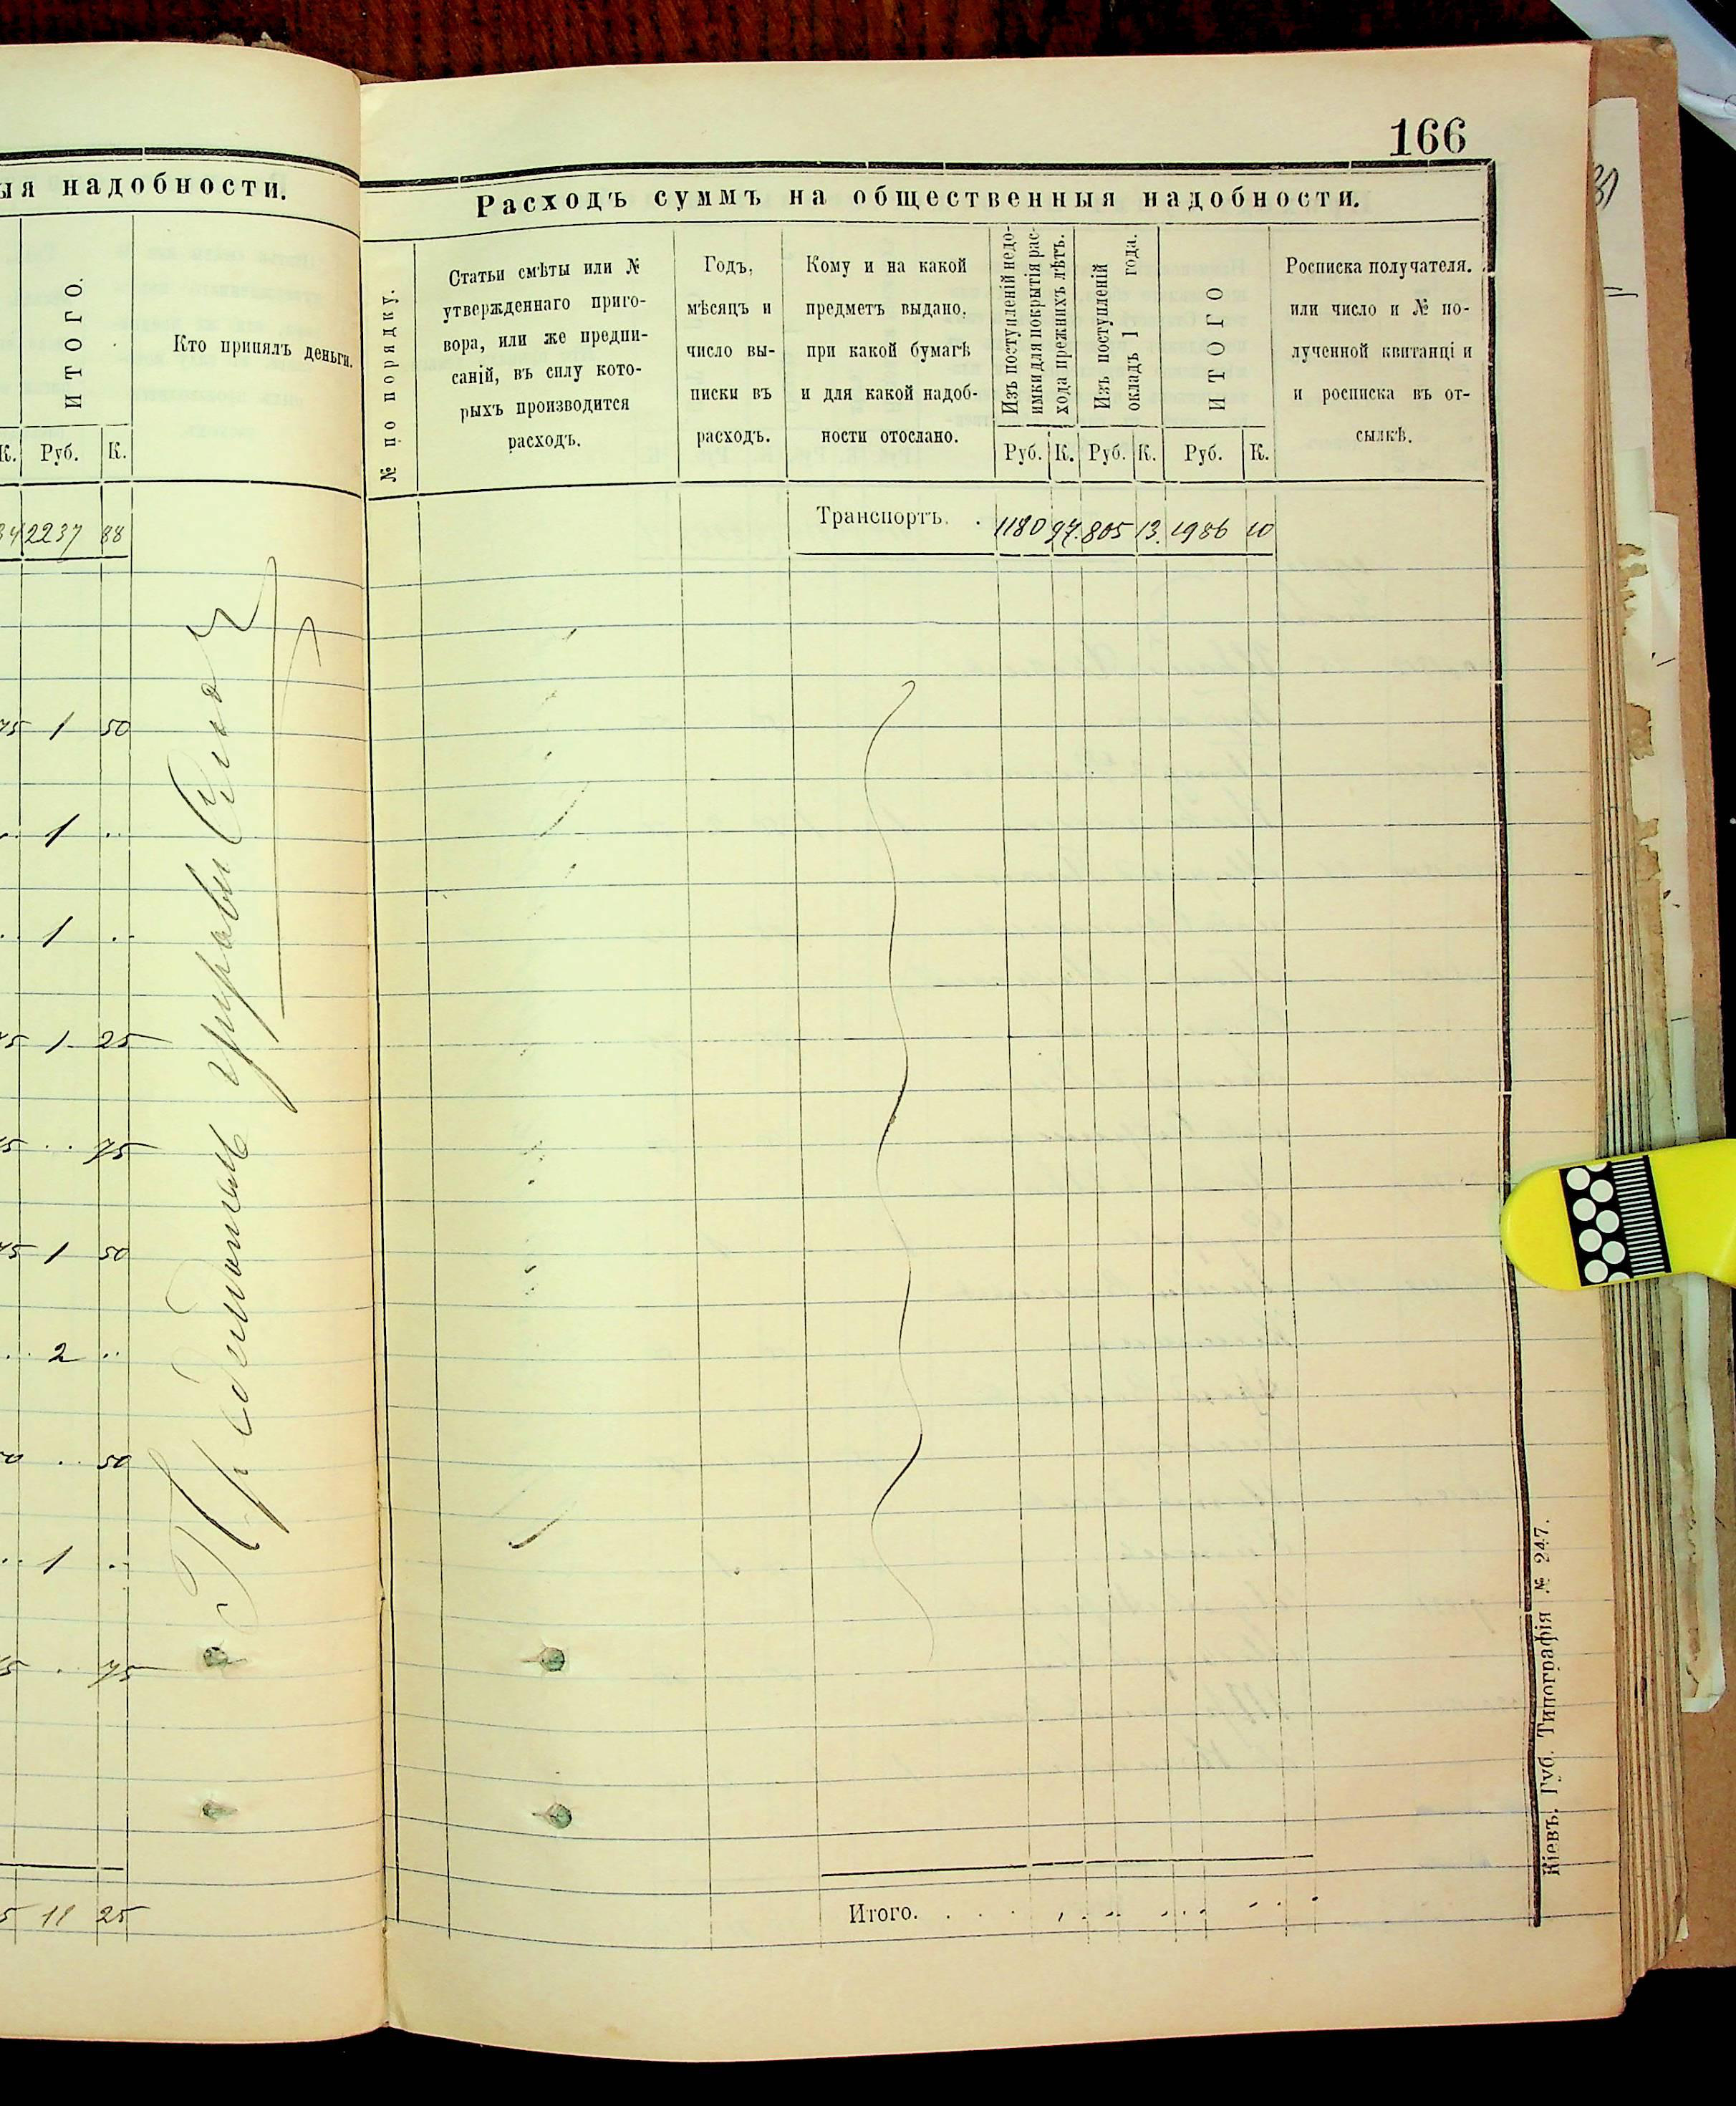 166
ыя надобности.
ИТОГО.
Кто принялъ деньги.
К. Руб. К.
34 2237 88
75 1 50
1 ..
1 ..
75 1 25
75 .. 75
75 1 50
.. 2 ..
50 .. 50
.. 1 ..
75 . 75
5 11 25
управы
Расходъ суммъ на общественныя надобности.
№ по порядку.
Статьи смѣты или №
утвержденнаго приго-
вора, или же предпи-
саній, въ силу кото-
рыхъ производится
расходъ.
Годъ,
мѣсяцъ и
число вы-
писки въ
расходъ.
Кому и на какой
предметъ выдано,
при какой бумагѣ
и для какой надоб-
ности отослано.
Изъ поступленій недо-
имки для покрытія рас-
хода прежнихъ лѣтъ.
Изъ поступленій
окладъ 1 года.
ИТОГО
Росписка получателя.
или число и № по-
лученной квитанці и
и росписка въ от-
сылкѣ.
Руб. К. Руб. К. Руб. К.
Транспортъ. . 1180 97. 805 13. 1986 10
Итого. . . .
Кіевъ. Губ. Типографія № 247.